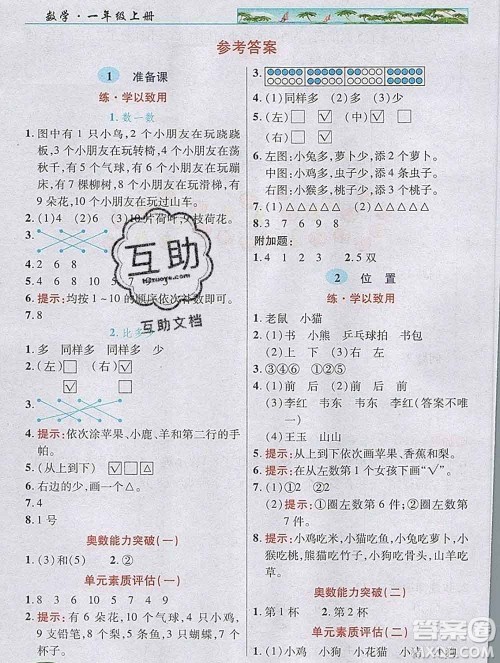 数学·一年级上册
参考答案
1 准备课
练·学以致用
1.数一数
1.图中有 1 只小鸟,2 个小朋友在玩跷跷
板,3 个小朋友在玩转椅,4 个小朋友在荡
秋千,5 个气球,6 个小朋友在玩蹦
床,7 棵柳树,8 个小朋友在玩滑梯,有
9 朵花,10 个小朋友在玩过山车。
2.(1)4 6 (2)10片荷叶,7枝荷花。
3.
4.2 6 8
5.10 9 8 7 6 5 4 3 2 1
6.提示:均按 1~10 的顺序依次补数即可。
7.8
2.比多少
1.多 同样多 同样多 少
2.(左)□☑ (右)☑□
3.
4.提示:依次涂苹果、小鹿、羊和第二行的手
帕。
5.(从上到下)☑□☑☑
6.右边的少,画一个△。
7.4
8.1 号
奥数能力突破(一)
1.(3)和(5) 2.②
单元素质评估(一)
1.8 3 6 10 5 9 7 4
2.提示:有 6 朵花,10 个气球,4 只小鸡,
9 支铅笔,5 个桃子,3 只蝴蝶,8 条鱼,7 个
杯子。
3.
4.(1)同样多 (2)多 (3)少
5.(左)□☑ (右)□☑
6.左图:小兔多,萝卜少,添 2 个萝卜。
中图:小鸡多,虫子少,添 4 条虫子。
右图:小猴多,桃子少,添 3 个桃子。
7.(1)△△△△△ (2)△△△△△
8.3 7 6 9 8
附加题:
1.② ③ 2.5 双
2 位置
练·学以致用
1.老鼠 小猫
2.(1)书 小熊 乒乓球拍 书包
(2)上 上 下 下
3.③④⑥ ①②⑤
4.(1)前 后 (2)前 前 后
(3)李红 韦东 韦东 李红(答案不唯
一)
(4)王玉 山山
5.提示:(从上到下)依次画苹果、香蕉和梨。
6.提示:在从左数第 1 个女孩下面画“√”。
7.提示:①圈左数第 6 件;②圈右数第
6 件。
8.提示:小鸡吃米,小猫吃鱼,小兔吃萝卜,小
猴吃桃,熊猫吃竹子,小狗吃骨头,小羊
吃草。
奥数能力突破(二)
1.第 1 杯 2.第 2 杯
单元素质评估(二)
互助
互助文档